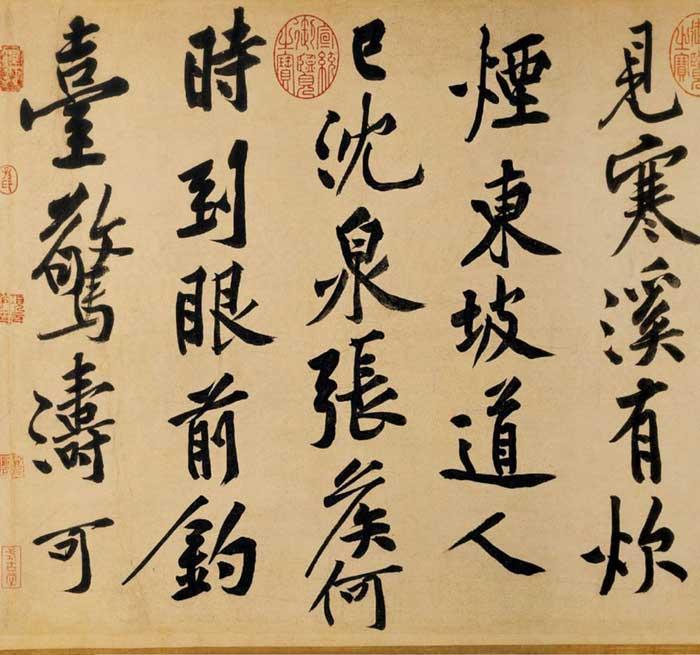 見寒溪有炊
煙東坡道人
已沈泉張侯何
時到眼前釣
臺驚濤可
宣統御覽之寶